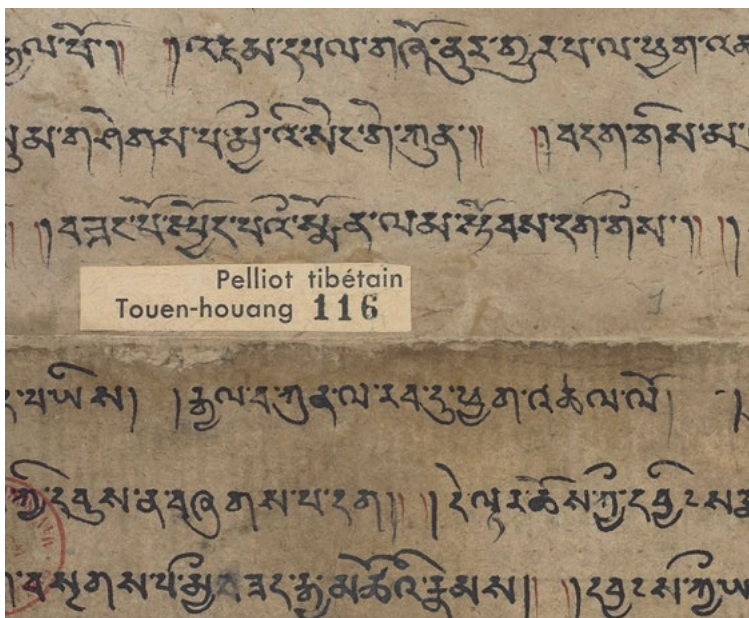 རྒྱལ་པོ།། །།འཇམ་དཔལ་གཞོ་ནུར་གུར་པ་ལ་ཕྱག་
སུམ་གཤེགས་པ་མྱི་འི་སེང་གེ་ཀུན།། །།བདག་གིས་མ་
།།བཟང་པོ་སྤྱོད་པའི་སྨོན་ལམ་སྟོབས་དག་གིས།། །།
Pelliot tibétain
Touen-houang 116
པ་ཡིས། །རྒྱལ་བ་ཀུན་ལ་རབ་དུ་ཕྱག་འཚལ་ལོ། །
ཀྱི་དབུས་ན་བཞུགས་པ་དག།། །།དེ་ལྟར་ཆོས་ཀྱི་དབྱིངས
བསྔགས་པ་མྱི་ཟད་རྒྱ་མཚོའི་རྣམས།། །།དབྱངས་ཀྱི་